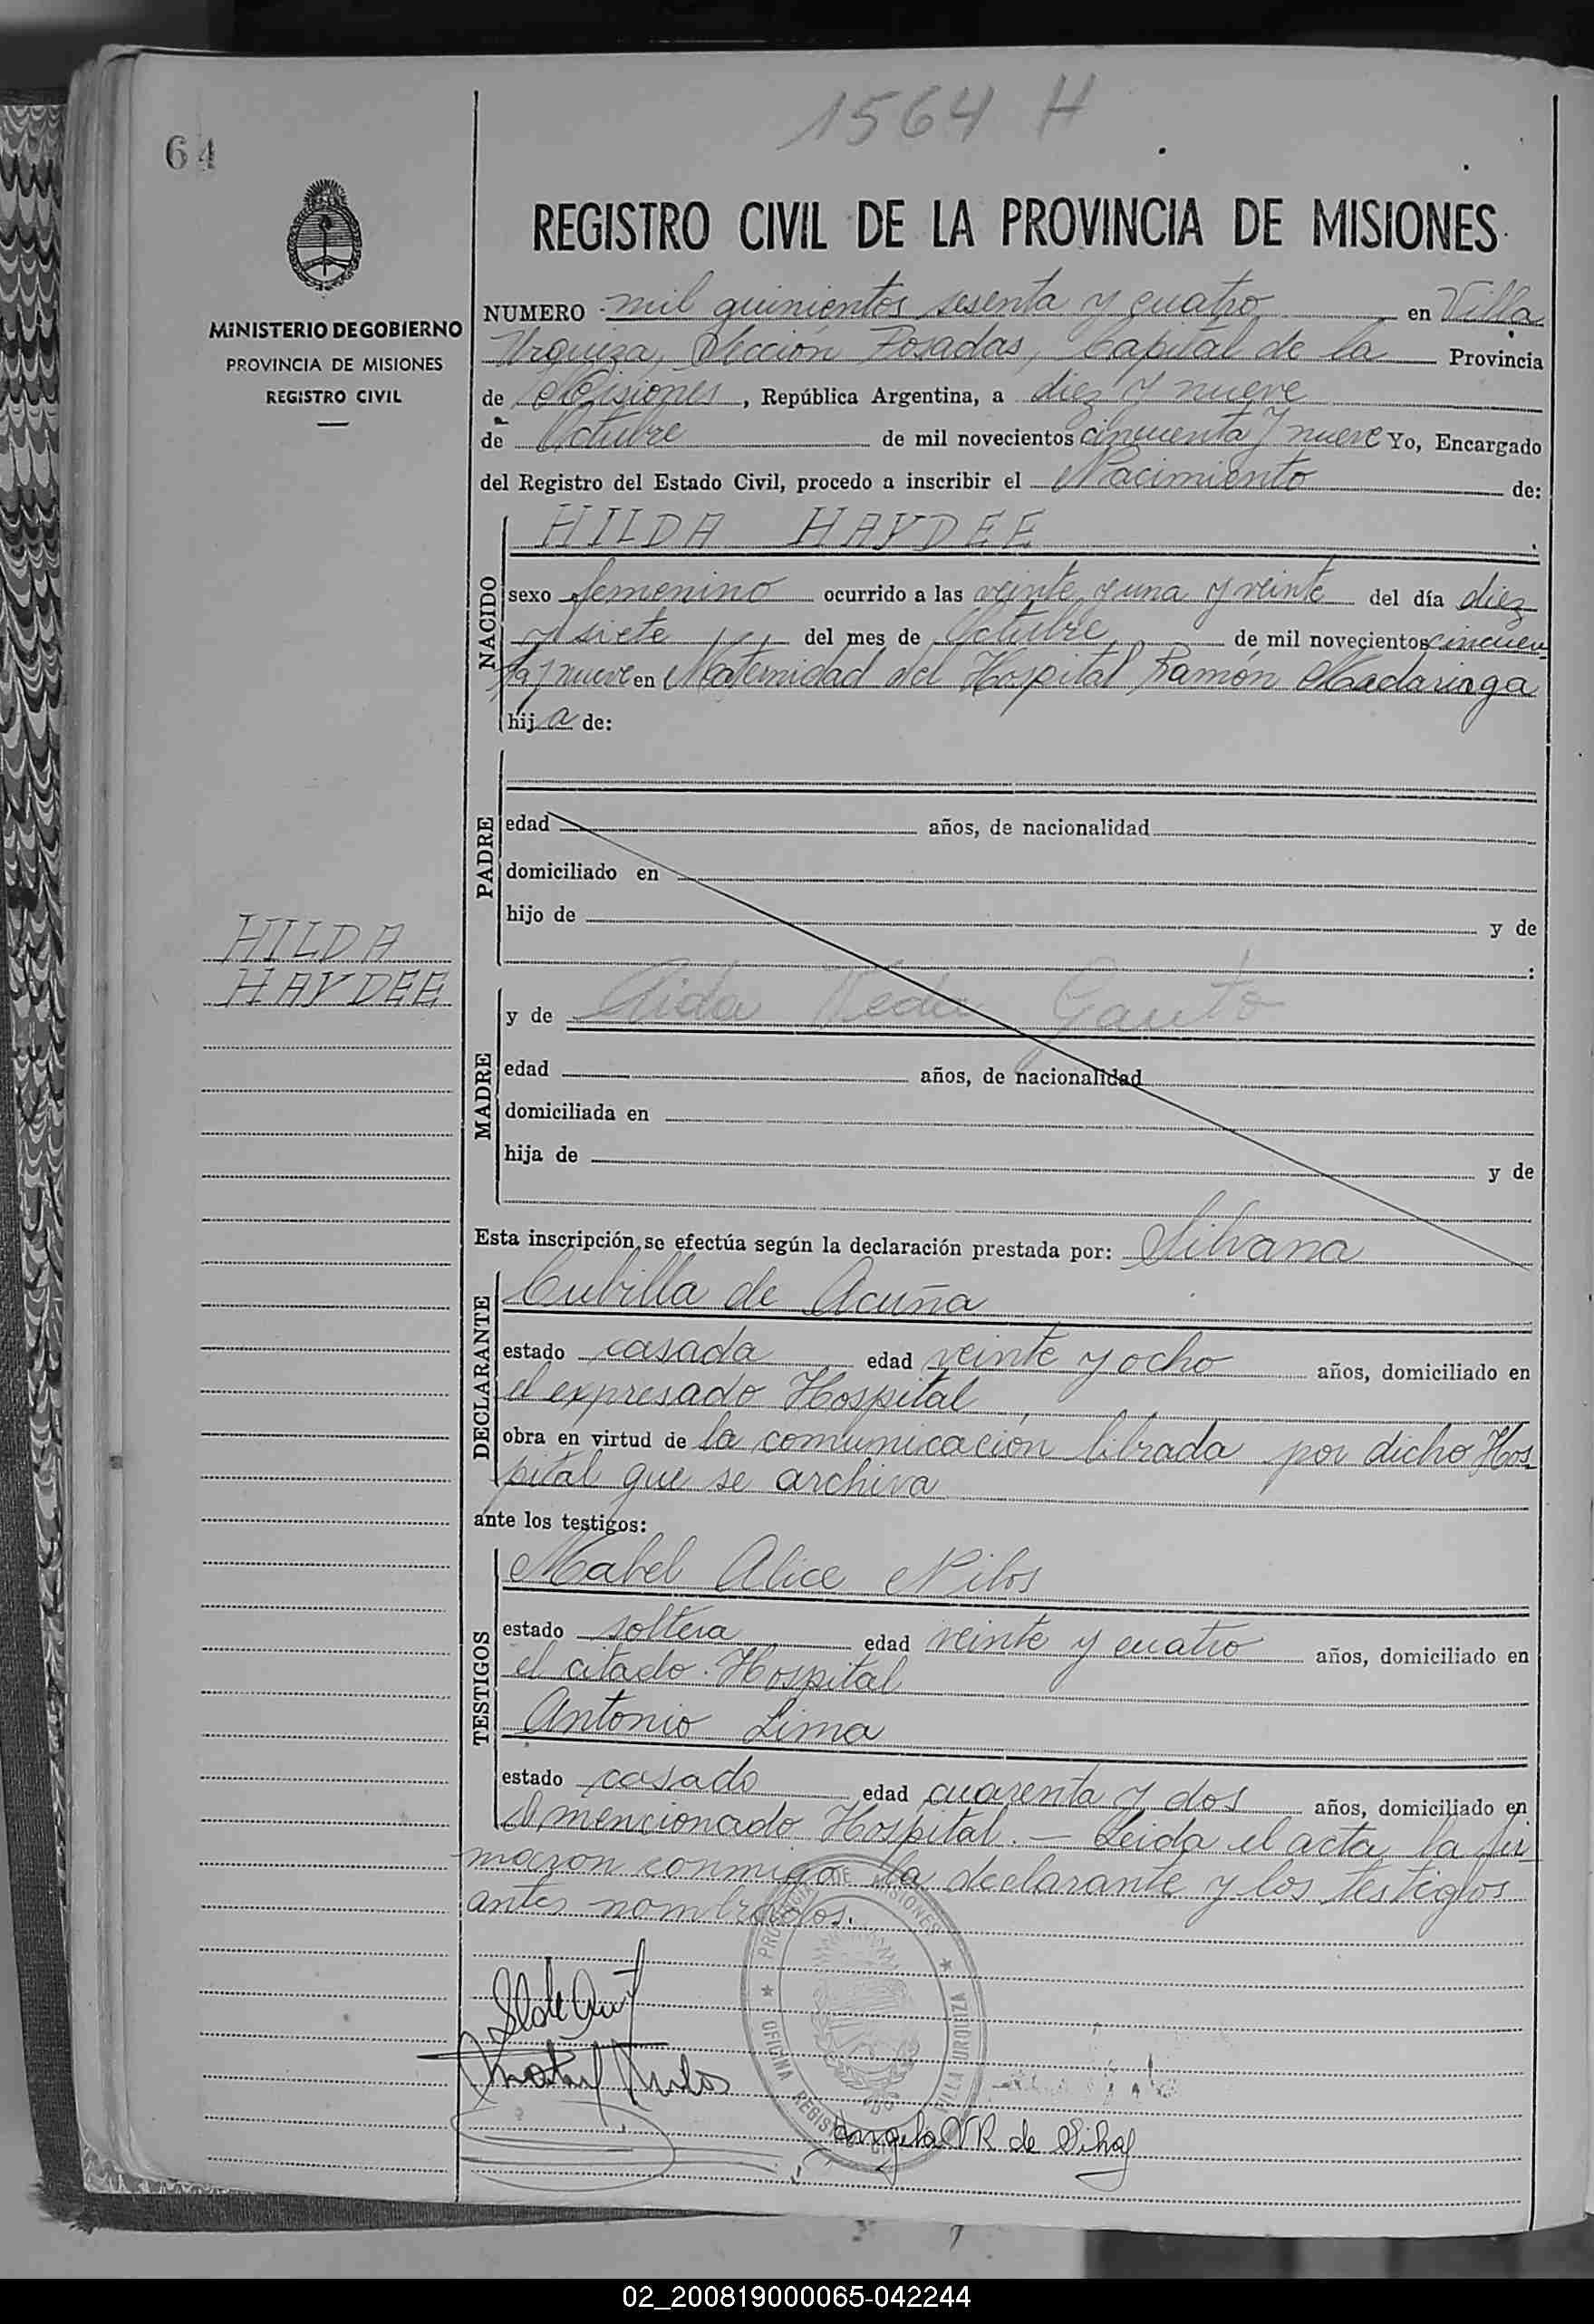 1564 H
64
REGISTRO CIVIL DE LA PROVINCIA DE MISIONES
MINISTERIO DE GOBIERNO
PROVINCIA DE MISIONES
REGISTRO CIVIL
NUMERO mil quinientos sesenta y cuatro en Villa
Urquiza, Sección Posadas, Capital de la Provincia
de Misiones, República Argentina, a diez y nueve
de Octubre de mil novecientos cincuenta y nueve Yo, Encargado
del Registro del Estado Civil, procedo a inscribir el Nacimiento de:
HILDA HAYDEE
NACIDO
sexo femenino ocurrido a las veinte y una y veinte del día diez
y siete del mes de Octubre de mil novecientos cincuen
ta y nueve en Maternidad del Hospital Ramón Madariaga
hija de:
PADRE
edad años, de nacionalidad
domiciliado en
hijo de y de
:
HILDA
HAYDEE
MADRE
y de Aida Gauto
edad años, de nacionalidad
domiciliada en
hija de y de
Esta inscripción se efectúa según la declaración prestada por: Silvana
DECLARANTE
Cubilla de Acuña
estado casada edad veinte y ocho años, domiciliado en
el expresado Hospital
obra en virtud de la comunicación librada por dicho Hos-
pital que se archiva
ante los testigos:
TESTIGOS
Mabel Alice Nilos
estado soltera edad veinte y cuatro años, domiciliado en
el citado Hospital
Antonio Lima
estado casado edad cuarenta y dos años, domiciliado en
el mencionado Hospital. — Leida el acta, la fir
maron conmigo la declarante y los testigos
antes nombrados.
PROVINCIA DE MISIONES
OFICINA REGISTRO CIVIL VILLA URQUIZA
Angela V R de Silva
02_200819000065-042244